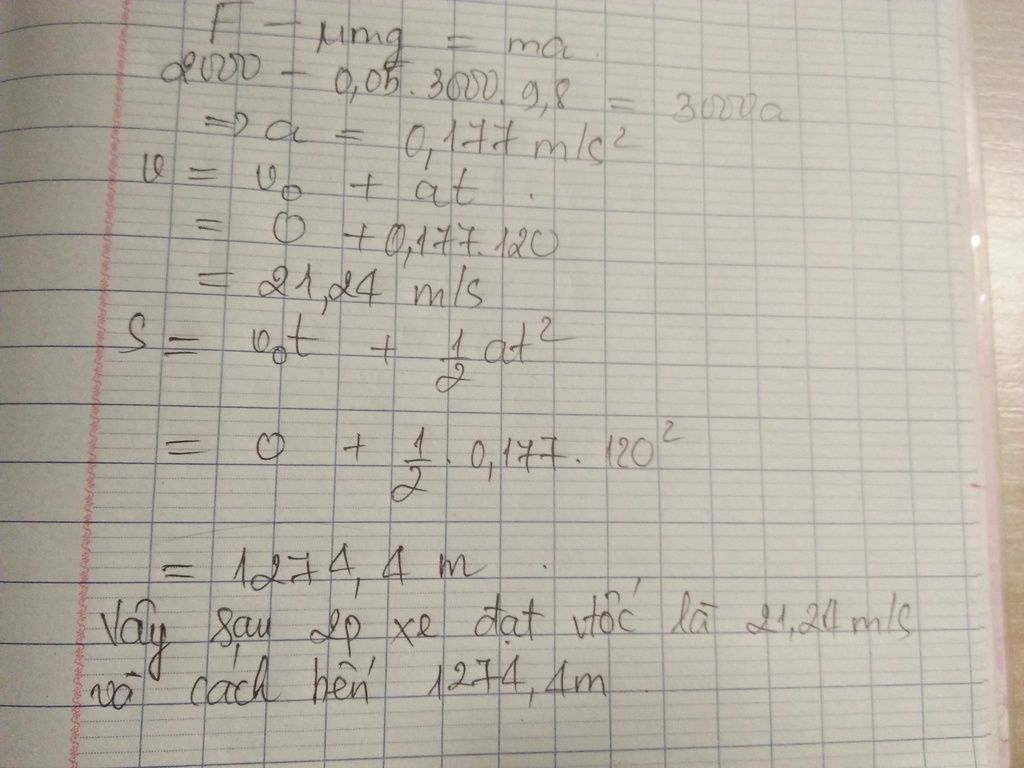 F - μmg = ma.
2000 - 0,05. 3000. 9,8 = 3000a
=> a = 0,177 m/s²
v = v₀ + at.
= 0 + 0,177.120
= 21,24 m/s
S = v₀t + 1/2 at²
= 0 + 1/2. 0,177. 120²
= 1274,4 m.
Vậy sau 2p xe đạt vtốc là 21,24 m/s
và cách bến 1274,4m.